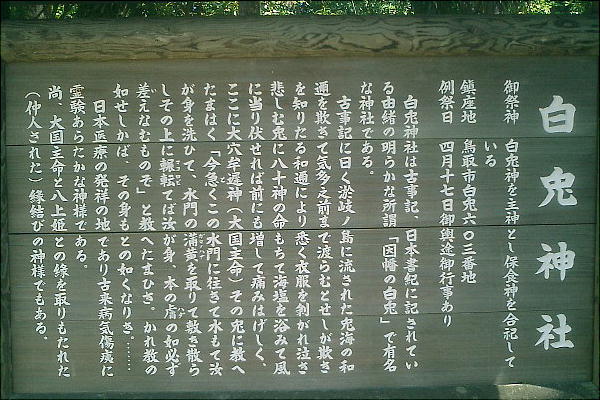 白兎神社
御祭神 白兎神を主神とし保食神を合祀して
いる
鎮座地 鳥取市白兎六〇三番地
例祭日 四月十七日御輿途御行事あり
白兎神社は古事記、日本書紀に記されてい
る由緒の明らかな所謂「因幡の白兎」で有名
な神社である。
古事記に曰く淤岐ノ島に流された兎海の和
邇を欺きて気多之前まで渡らむとせしが欺き
を知りたる和邇により悉く衣服を剥がれ泣き
悲しむ兎に八十神の命もちて海塩を浴みて風
に当り伏せれば前にも増して痛みはげしく、
ここに大穴牟遅神(大国主命)その兎に教へ
たまはく「今急くこの水門に往きて水もて汝
が身を洗ひて、水門の蒲黄を取りて敷き散ら
しその上に輾転てば汝が身、本の膚の如必す
差えなむものぞ」と教へたまひき。かれ教の
如せしかば、その身もとの如くなりき。……
日本医療の発祥の地であり古来病気傷痍に
霊験あらたかな神様である。
尚、大国主命と八上姫との縁を取りもたれた
(仲人された)縁結びの神様でもある。